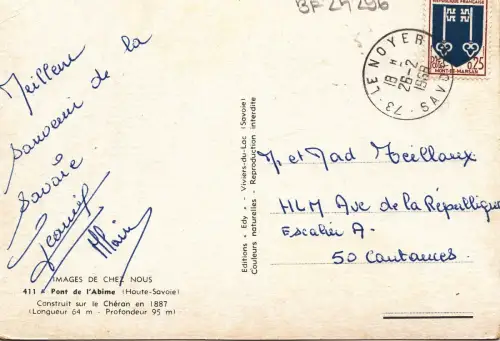 BF 24 296
Meilleur
souvenir de la
Savoie
Jeannine
Alain
IMAGES DE CHEZ NOUS
411 - Pont de l'Abime (Haute-Savoie)
Construit sur le Chéran en 1887
(Longueur 64 m - Profondeur 95 m)
Editions « Edy » - Viviers-du-Lac (Savoie)
Couleurs naturelles - Reproduction interdite
REPUBLIQUE FRANÇAISE
0,25
MONT-DE-MARSAN
73 - LE NOYER
18 H
26-2
1968
SAVOIE
M et Mad Teillaux
HLM Ave de la République
Escalier A.
50 Coutances